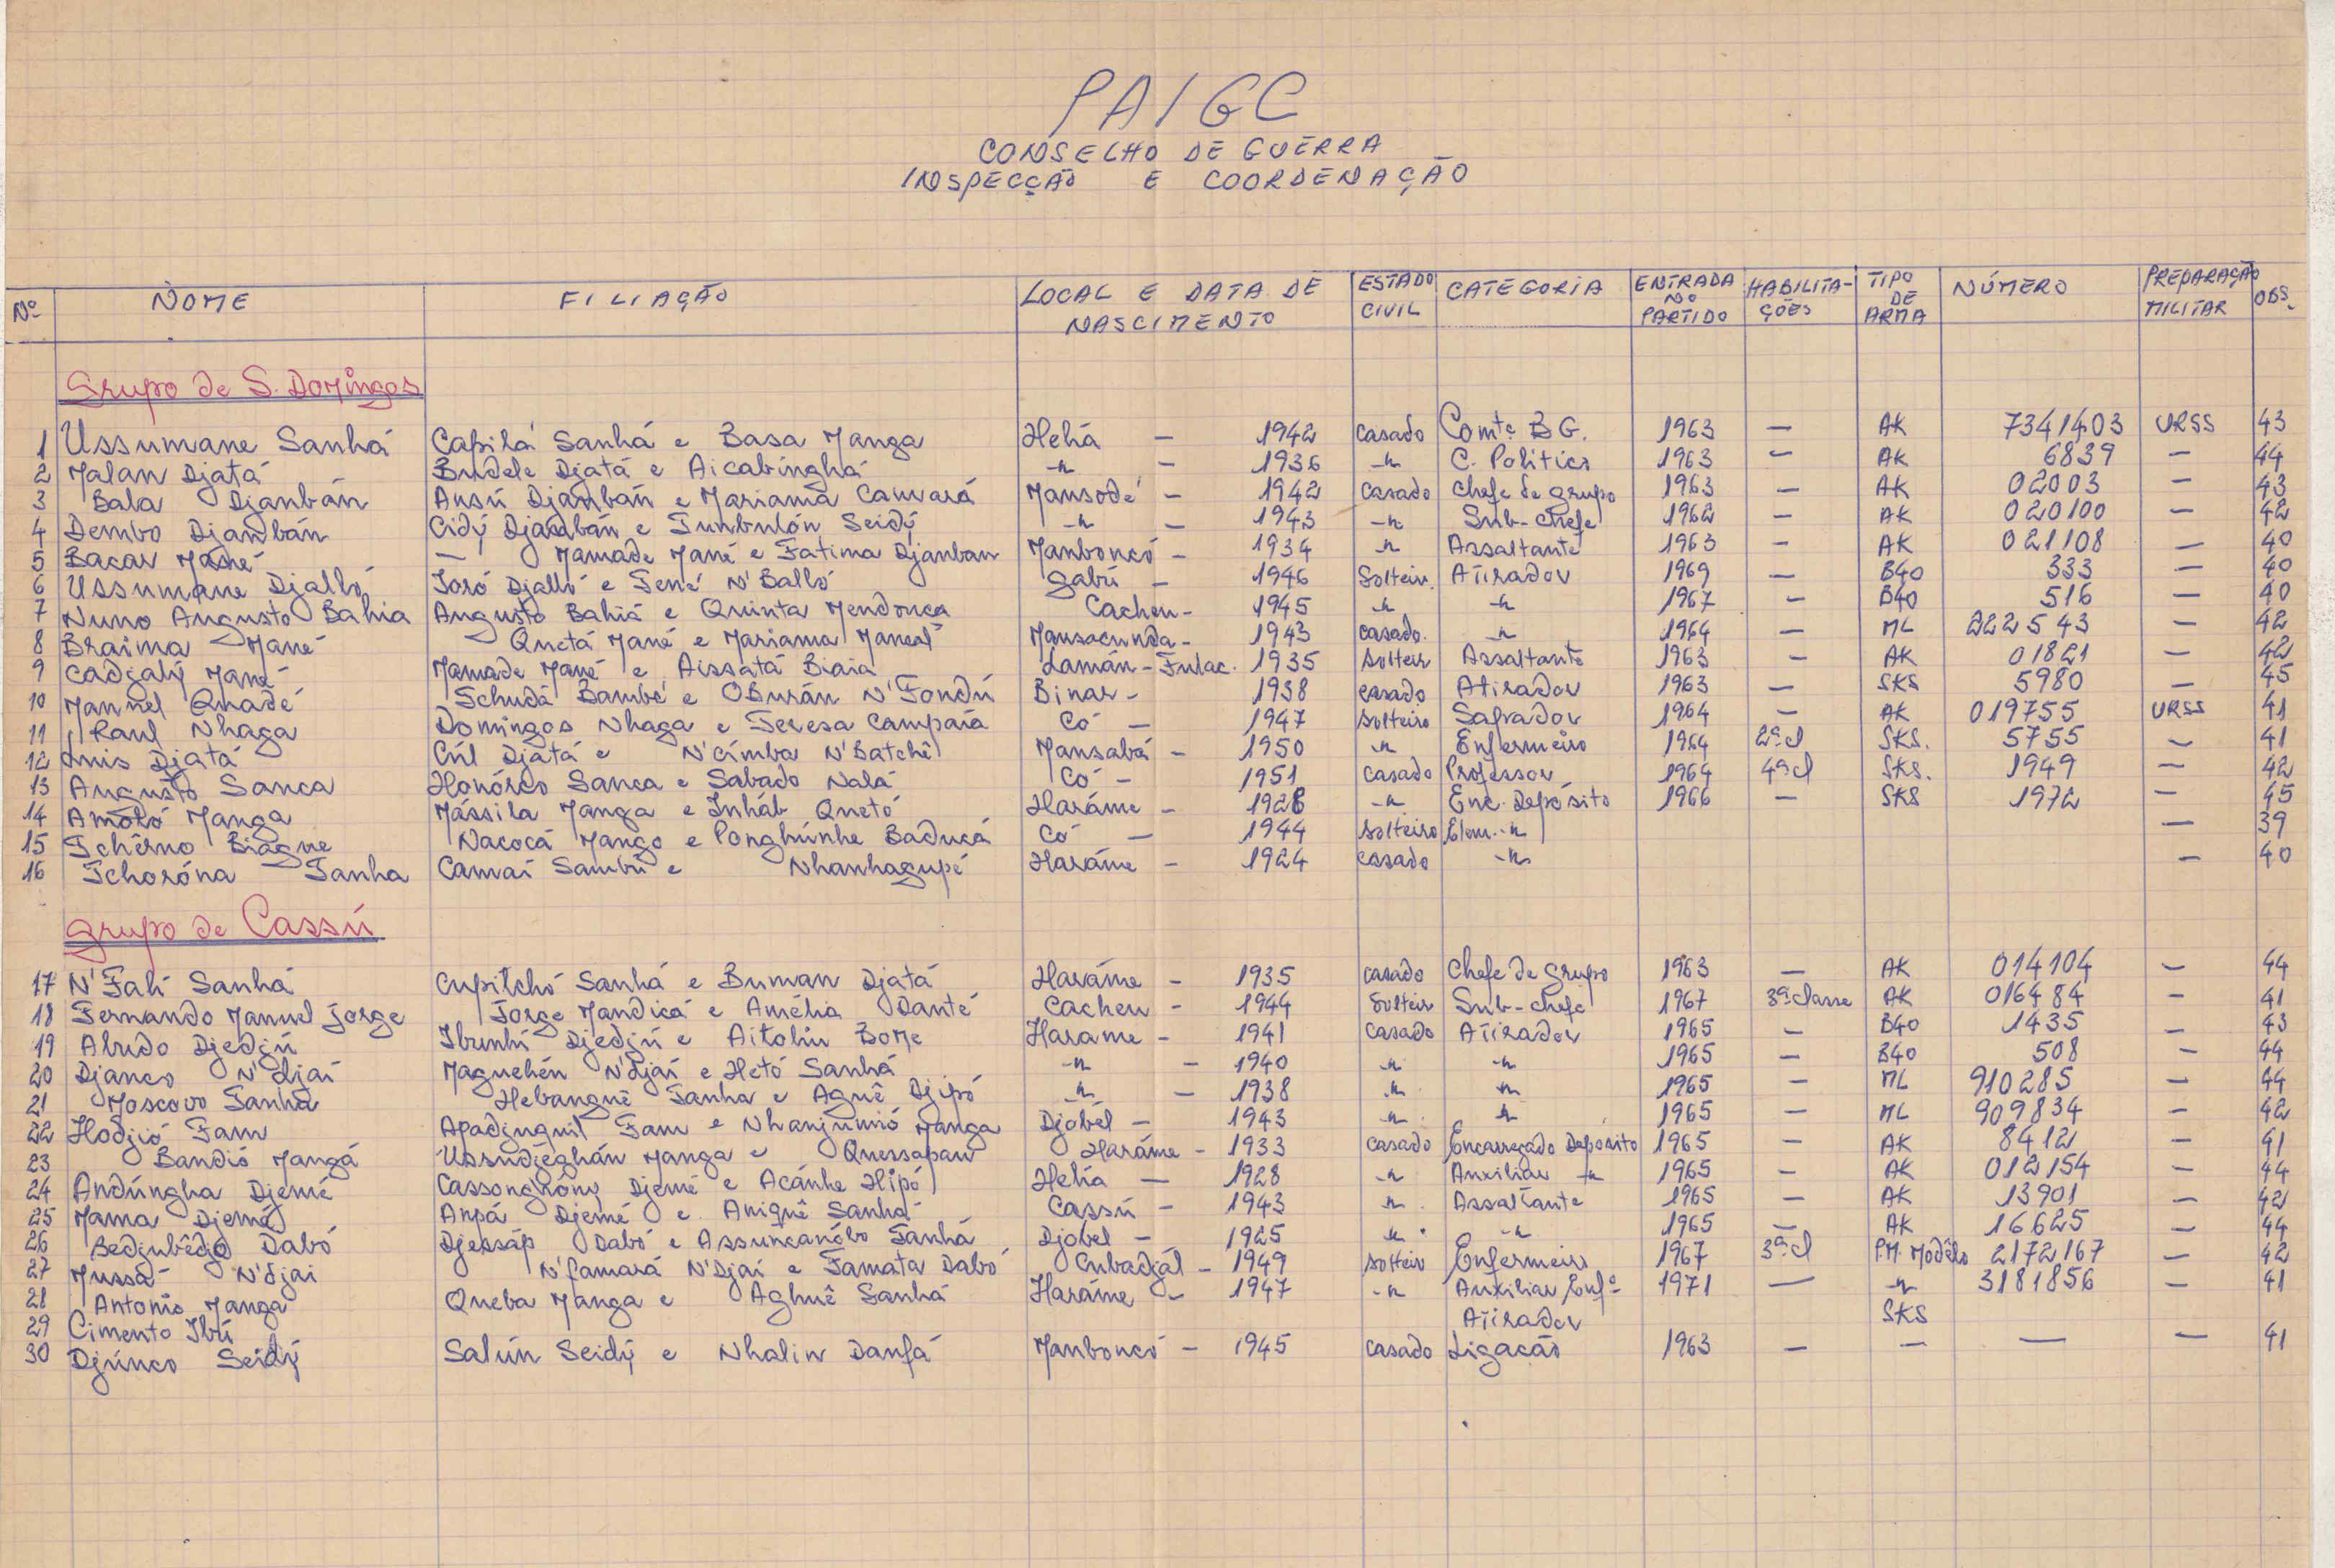 PAIGC
CONSELHO DE GUERRA
INSPECÇÃO E COORDENAÇÃO
Nº NOME FILIAÇÃO LOCAL E DATA DE NASCIMENTO ESTADO CIVIL CATEGORIA ENTRADA NO PARTIDO HABILITAÇÕES TIPO DE ARMA NÚMERO PREPARAÇÃO MILITAR OBS.
Grupo de S. Domingos
1 Ussumane Sanhá Capilá Sanhá e Basa Manga Heliá — 1942 casado Comte B G. 1963 — AK 7341403 URSS 43
2 Malan Djatá Budele Djatá e Aicabinghá -"- — 1936 -"- C. Politico 1963 — AK 6839 — 44
3 Bala Djanbán Ansú Djambán e Mariama Camará Mansodé — 1942 casado Chefe de grupo 1963 — AK 02003 — 43
4 Dembo Djambán Cidý Djambán e Tunbulón Seidý -"- — 1943 -"- Sub-chefe 1962 — AK 020100 — 42
5 Bacar Mané — Mamade Mané e Fatima Djanban Manboncó — 1934 -"- Assaltante 1963 — AK 021108 — 40
6 Ussumane Djalló Ioró Djalló e Tené N'Balló Gabú — 1946 Solteir. Atirador 1969 — B40 333 — 40
7 Nuno Augusto Bahia Augusto Bahiá e Quinta Mendonça Cacheu - 1945 -"- -"- 1967 — B40 516 — 40
8 Braima Mané Quetá Mané e Mariama Mancal Mansacunda - 1943 casado. -"- 1964 — ML 222543 — 42
9 Cadjalý Mané Mamade Mané e Aissatá Biaia Lamán - Fulac. 1935 solteir Assaltante 1963 — AK 01821 — 42
10 Manuel Quadé Tchudá Bambé e Oburán N'Fondú Binar - 1938 casado Atirador 1963 — SKS 5980 — 45
11 Raul Nhaga Domingos Nhaga e Teresa Campaiá Có — 1947 solteiro Sapador 1964 — AK 019755 URSS 41
12 Luis Djatá Cúl Djatá e N'címba N'Batchê Mansabá — 1950 -"- Enfermeiro 1964 2ª cl SKS. 5755 — 41
13 Augusto Sanca Honórco Sanca e Sabado Nalá Có — 1951 casado Professor 1964 4ª cl SKS. 1949 — 42
14 Amóló Manga Mássila Manga e Inháb Quetó Haráme — 1928 -"- Enc. Depósito 1966 — SKS 1972 — 45
15 Tchêrno Biague Nacocá Mango e Ponghúnhe Baducá Có — 1944 solteiro Elem. -"- — 39
16 Tchoróna Tanha Camaí Sambú e Nhanhagupé Haráme — 1924 casado -"- — 40
grupo de Cassú
17 N'Fali Sanhá Cupitchó Sanhá e Buman Djatá Haráme — 1935 casado Chefe de Grupo 1963 — AK 014104 — 44
18 Fernando Manuel Jorge Jorge Mandicá e Amélia Danté Cacheu — 1944 solteir Sub-chefe 1967 3ª classe AK 016484 — 41
19 Abudo Djedjú Ibunhú Djedjú e Aitoliu Bome Harame — 1941 casado Atirador 1965 — B40 1435 — 43
20 Djanco N'djaí Maguehén N'djaí e Hetó Sanhá -"- — 1940 -"- -"- 1965 — B40 508 — 44
21 Moscovo Tanha Hebanguê Tanha e Aguê Djipó -"- — 1938 -"- -"- 1965 — ML 910285 — 44
22 Hodjió Fam Apadjuguil Fam e Nhanjumió Manga Djobél — 1943 -"- -"- 1965 — ML 909834 — 42
23 Bandió Mangá Ussudjeghán Manga e Quessapan Haráme — 1933 casado Encarregado Deposito 1965 — AK 8412 — 41
24 Andúngha Djemé Cassonghóng Djemé e Acánhe Hipó Heliá — 1928 -"- Auxiliar -"- 1965 — AK 012154 — 44
25 Mama Djemé Anpá Djemé e Aniguê Sanhá Cassú — 1943 -"- Assaltante 1965 — AK 13901 — 42
26 Bedjubêdjo Dabó Djessáp Dabó e Assuncanóbo Tanhá Djobel — 1925 -"- -"- 1965 — AK 16625 — 44
27 Mussá N'djai N'famará N'Djaí e Famata Dabó Cubadjál — 1949 solteir Enfermeiro 1967 3ª cl P.M. Modêlo 2172167 — 42
28 Antonio Manga Queba Manga e Aghuê Sanhá Haráme — 1947 -"- Auxiliar Enfº 1971 — -"- 3181856 — 41
29 Cimento Ibú Atirador SKS
30 Djúnco Seidý Salún Seidý e Nhalin Danfá Manboncó — 1945 casado Ligação 1963 — — — — 41